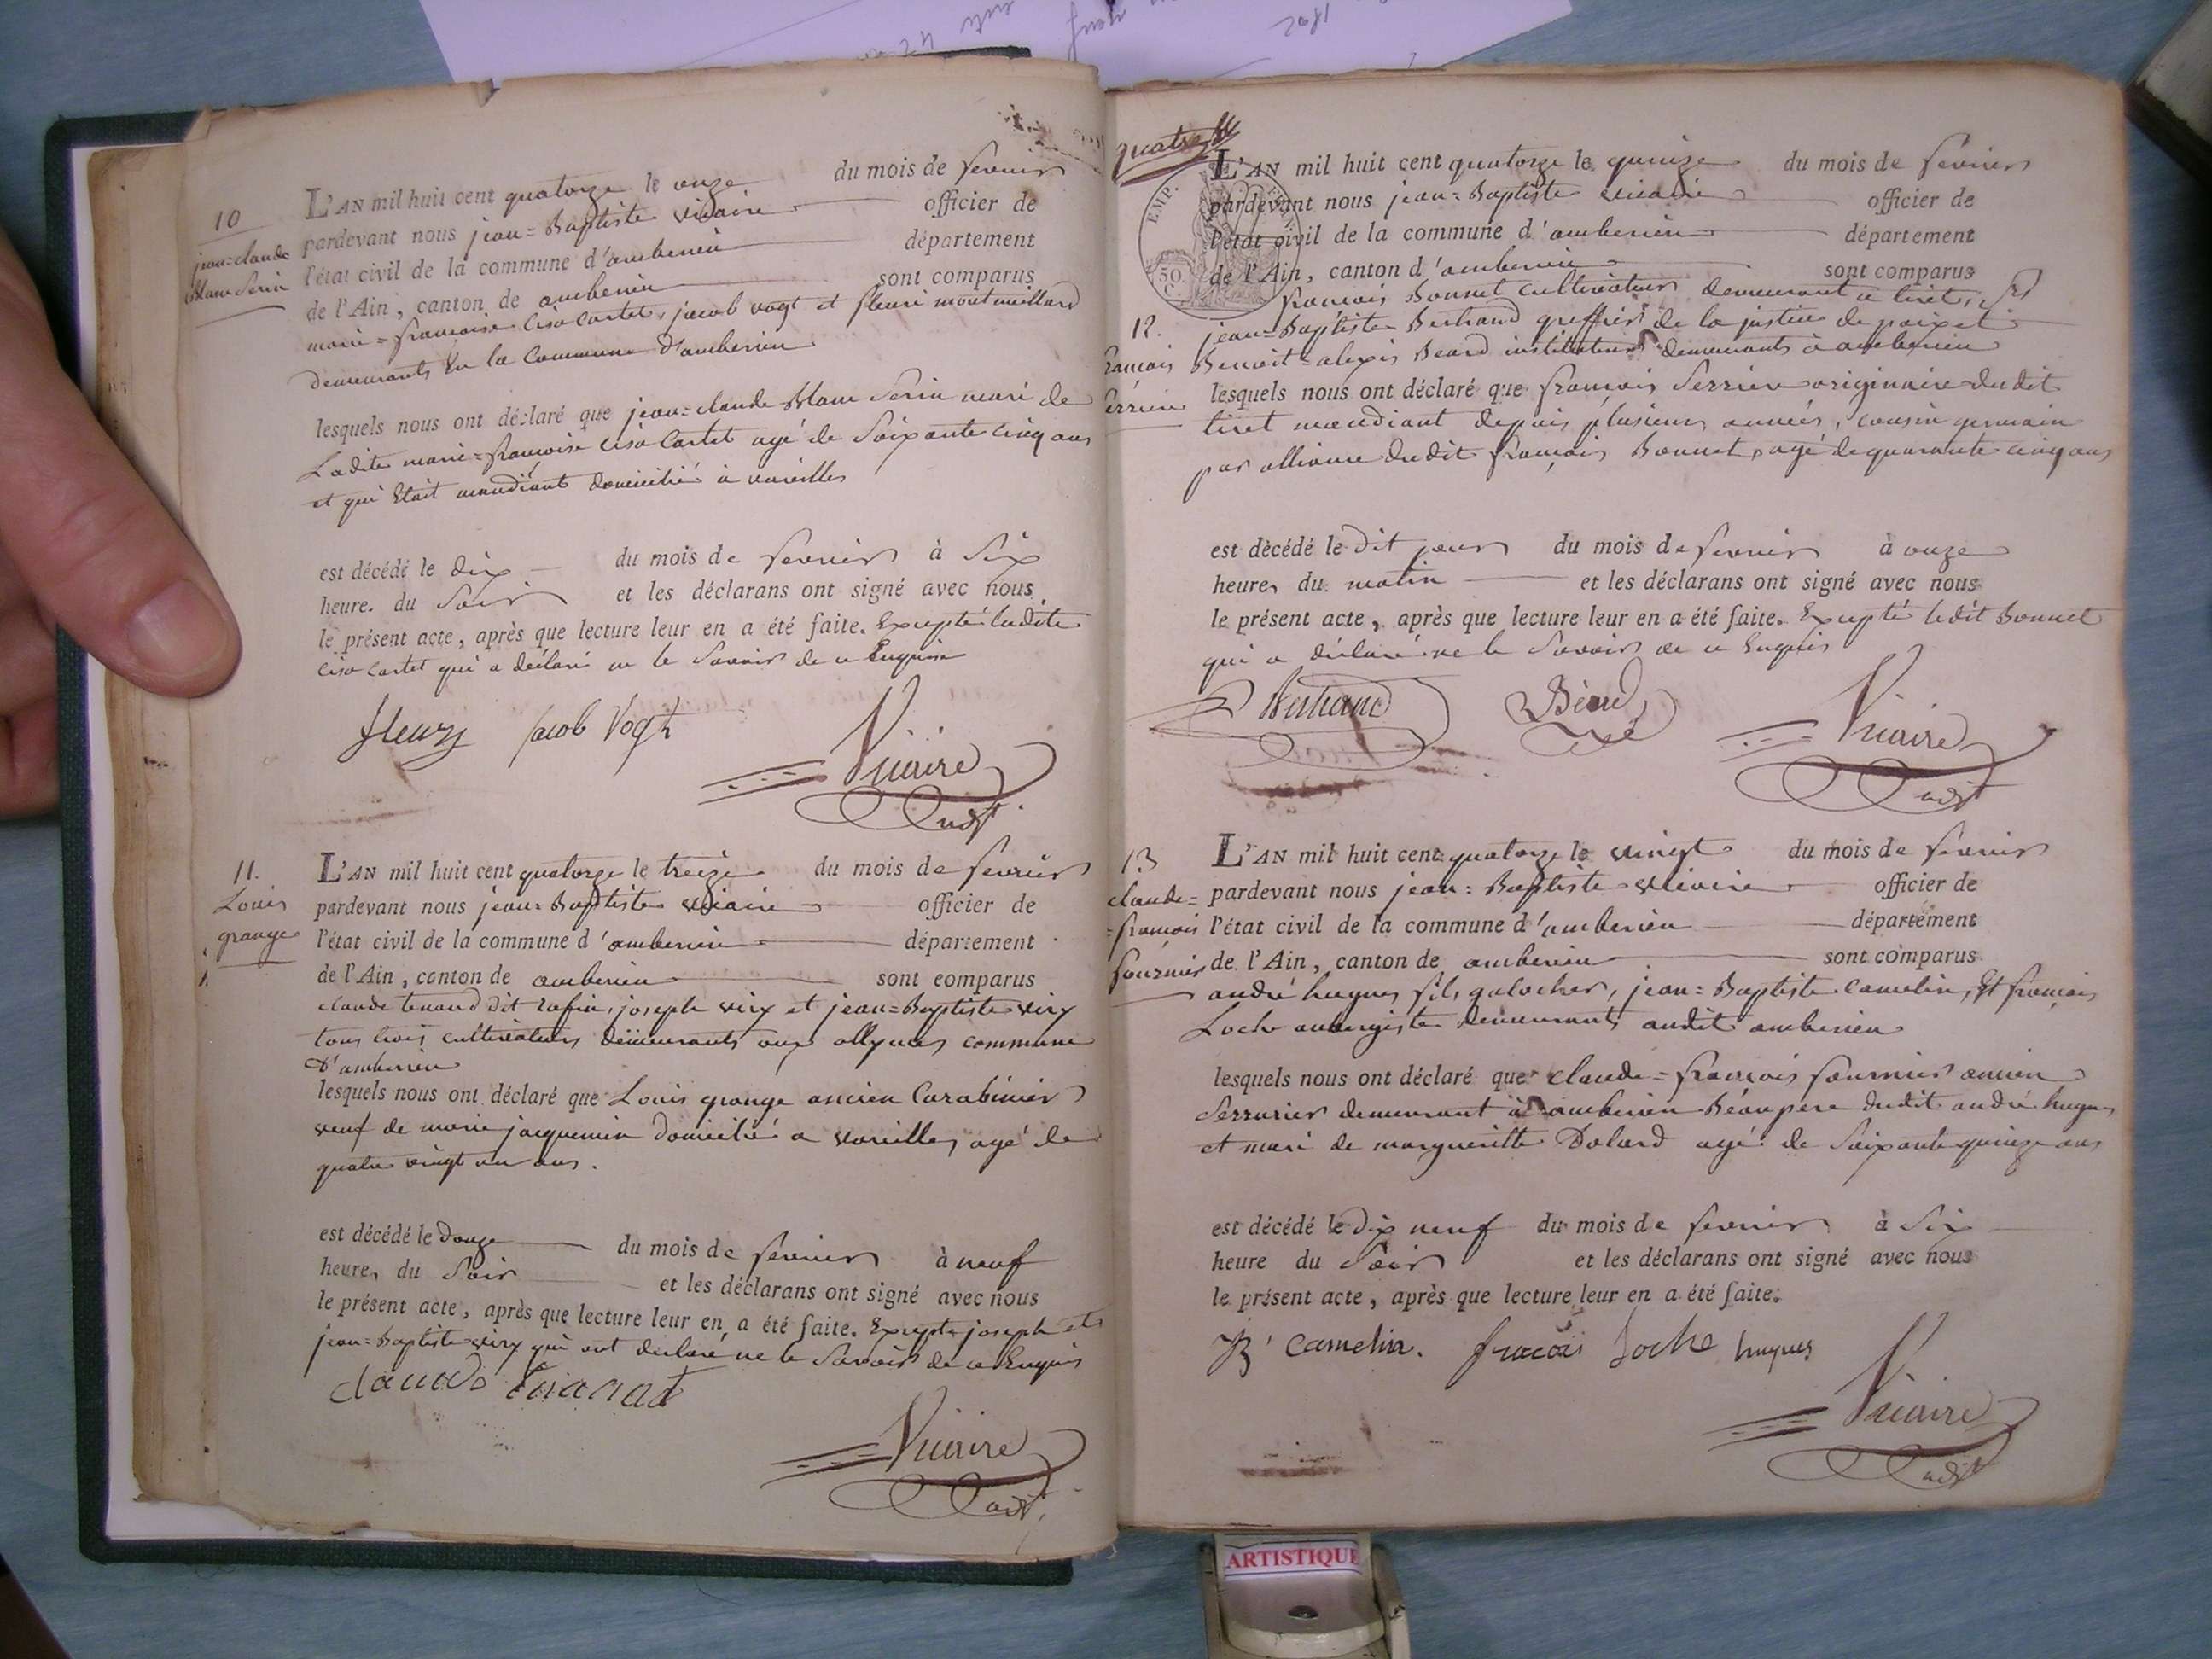 10
jean=claude
Blanc Serin
L'AN mil huit cent quatorze le onze du mois de fevrier
pardevant nous jean=Baptiste vicaire officier de
l'état civil de la commune d'amberieu département
de l'Ain, canton de amberieu sont comparus
marie=francoise Ciso Cartet, jacob vogt et fleuri montmeillard
demeurants En la Commune d'amberieu
lesquels nous ont déclaré que jean=claude Blanc Serin mari de
Ladite marie=francoise Ciso Cartet agé de Soixante cinq ans
et qui Etait mendiant domicilié à vareilles
est décédé le dix du mois de fevrier à Six
heure. du Soir et les déclarans ont signé avec nous
le présent acte, après que lecture leur en a été faite. Excepté ladite
Ciso Cartet qui a déclaré ne le Savoir de ce Enquise
fleury jacob Vogt
Vicaire
adjt
11.
Louis
grange
L'AN mil huit cent quatorze le treize du mois de fevrier
pardevant nous jean=Baptiste vicaire officier de
l'état civil de la commune d'amberieu département
de l'Ain, canton de amberieu sont comparus
claude tenand dit rafin, joseph viry et jean=Baptiste viry
tous trois cultivateurs demeurants aux allymes commune
D'amberieu
lesquels nous ont déclaré que Louis grange ancien Carabinier
veuf de marie jacquemin domicilié a vareilles agé de
quatre vingt un ans.
est décédé le douze du mois de fevrier à neuf
heures du Soir et les déclarans ont signé avec nous
le présent acte, après que lecture leur en a été faite. Excepté joseph et
jean=Baptiste viry qui ont déclaré ne le Savoir de ce Enquis
claude
Vicaire
adjt
quatre
EMP.
50
C.
L'AN mil huit cent quatorze le quinze du mois de fevrier
pardevant nous jean=Baptiste vicaire officier de
l'état civil de la commune d'amberieu département
de l'Ain, canton d'amberieu sont comparus
francois Bonnet cultivateur demeurant a tiret,
12.
francois
jean=Baptiste Bertrand greffier de la justice de paix et
Benoit=alexis Beard instituteur demeurants à amberieu
lesquels nous ont déclaré que francois Serrier originaire dudit
tiret mendiant depuis plusieurs années, cousin germain
par alliance dudit francois Bonnet, agé de quarante cinq ans
est décédé le dit jour du mois de fevrier à onze
heures du matin et les déclarans ont signé avec nous
le présent acte, après que lecture leur en a été faite. Excepté ledit Bonnet
qui a déclaré ne le Savoir de ce Enquis
Bertrand Béard Vicaire
adjt
13
claude=
=francois
fournier
L'AN mil huit cent quatorze le vingt du mois de fevrier
pardevant nous jean=Baptiste vicaire officier de
l'état civil de la commune d'amberieu département
de l'Ain, canton de amberieu sont comparus
andré hugues fils galocher, jean=Baptiste Camelin, Et francois
Loche aubergiste demeurants audit amberieu
lesquels nous ont déclaré que claude=francois fournier ancien
Serrurier demeurant à amberieu Béaupere dudit andré hugues
et mari de margueritte Dolard agé de Soixante quinze ans
est décédé le dix neuf du mois de fevrier à Six
heure du Soir et les déclarans ont signé avec nous
le présent acte, après que lecture leur en a été faite.
B camelin. francois Loche hugues
Vicaire
adjt
ARTISTIQUE